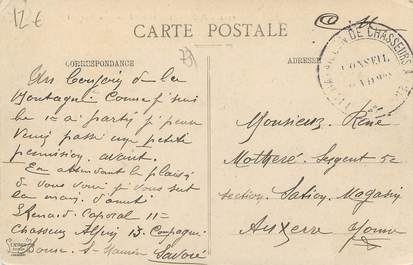 12 €
CARTE POSTALE
CORRESPONDANCE
ADRESSE
DE CHASSEURS A
CONSEIL
Un Bonjour de la
Montagne Comme j'suis
le 1e a partir j'peux
venir passé une petite
permission avant.
En attendant le plaisir
de vous voir je vous sert
la main. d'amitié
Caporal 11e
Chasseur Alpin 13. Compagnie
Bourg St Maurice Savoie
Monsieur René
Motheré Sergent 52
section Station Magasin
Auxerre Yonne